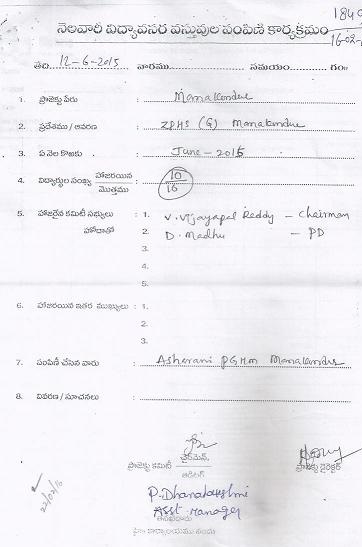 1840
నెలవారీ విద్యావసర వస్తువుల పంపిణి కార్యక్రమం
16-02-
తేది 12-6-2015 వారము సమయం గం॥
1. ప్రాజెక్టు పేరు : Manakondur
2. ప్రదేశము / ఆవరణ : ZPHS (G) Manakondur
3. ఏ నెల కొఱకు : June - 2015
4. విద్యార్థుల సంఖ్య హాజరయిన / మొత్తము : 10/16
5. హాజరైన కమిటీ సభ్యులు : 1. V. Vijayapal Reddy - Chairman
హోదాతో 2. D. Madhu - PD
3.
4.
5.
6. హాజరయిన ఇతర ముఖ్యులు : 1.
2.
3.
7. పంపిణీ చేసిన వారు : Asharani PGHM Manakondur
8. వివరణ / సూచనలు :
ఛైర్మెన్,
ప్రాజెక్టు కమిటీ
ఆడిటర్
ప్రాజెక్టు డైరెక్టర్
P. Dhanalakshmi
Asst. Manager